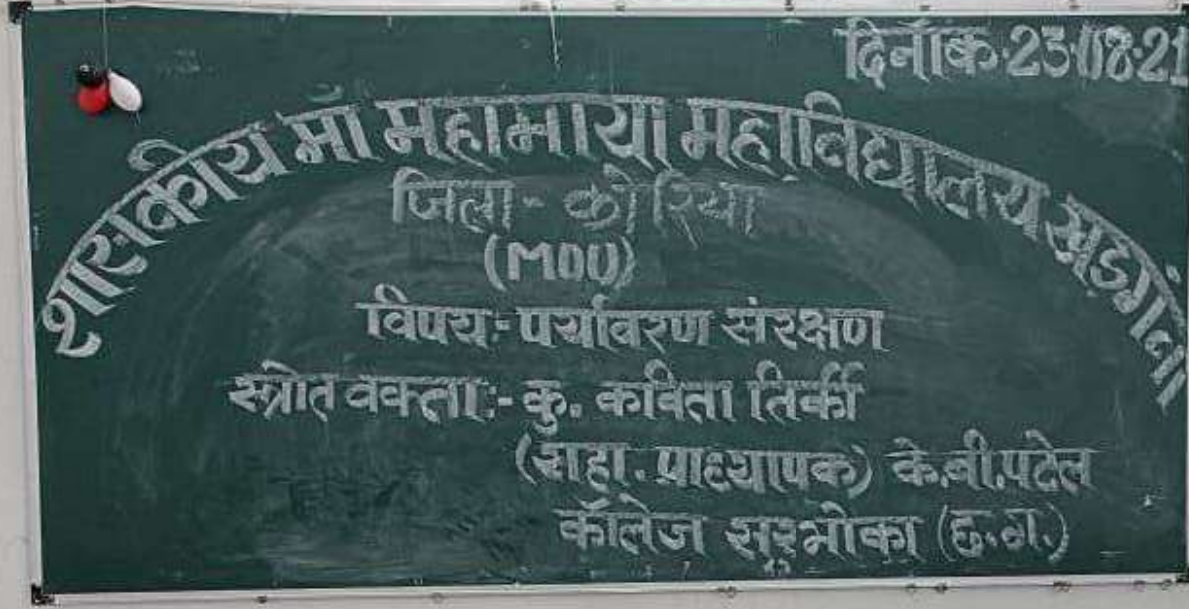 दिनाँक-23-08-21
शासकीय माँ महामाया महाविद्यालय खड़गवां
जिला- कोरिया
(MOU)
विषय:- पर्यावरण संरक्षण
स्त्रोत वक्ता:- कु. कविता तिर्की
(सहा. प्राध्यापक) के.बी.पटेल
कॉलेज सूरभोका (छ.ग.)